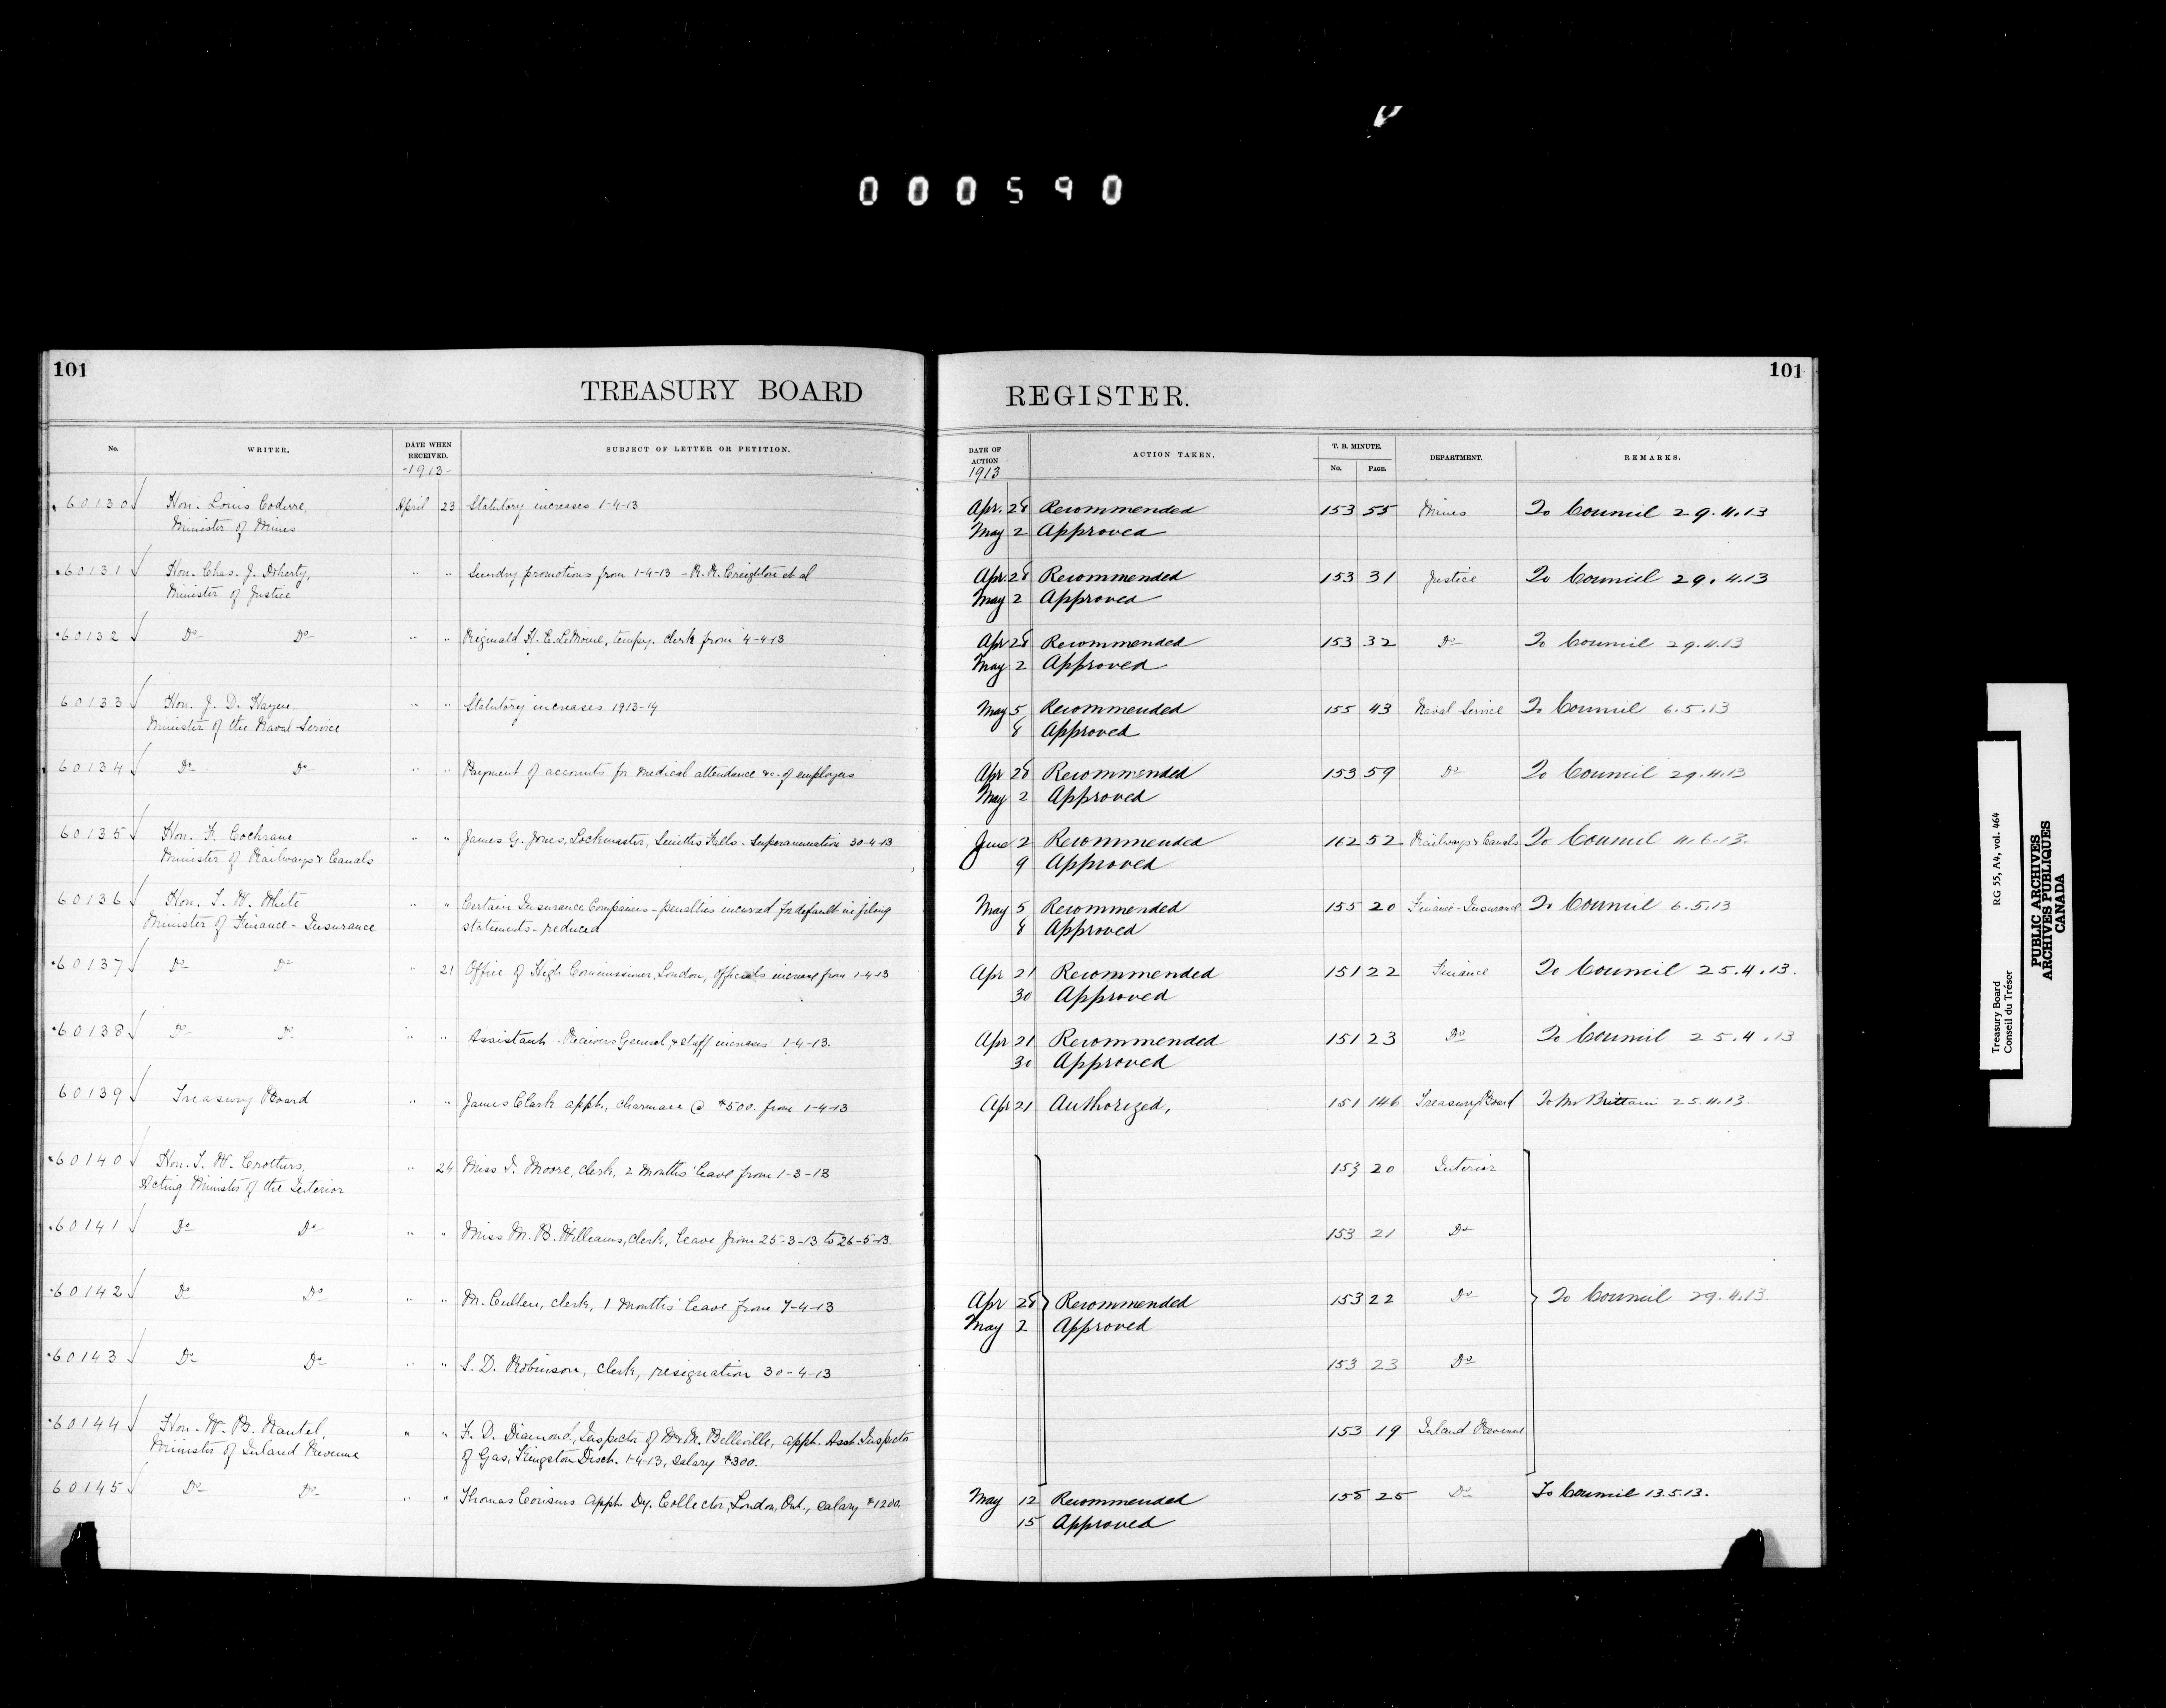 000590
101
TREASURY BOARD
REGISTER.
101
No.
WRITER.
DATE WHEN RECEIVED.
-1913-
SUBJECT OF LETTER OR PETITION.
DATE OF ACTION
1913
ACTION TAKEN.
T. B. MINUTE.
No.
PAGE.
DEPARTMENT.
REMARKS.
60130 Hon. Louis Coderre, April 23 Statutory increases 1-4-13 Apr. 28 Recommended 153 55 Mines To Council 29.4.13
Minister of Mines May 2 Approved
60131 Hon. Chas. J. Doherty, " " Sundry promotions from 1-4-13 - R. R. Creighton et al Apr. 28 Recommended 153 31 Justice To Council 29.4.13
Minister of Justice May 2 Approved
60132 Do Do " " Reginald H. C. LeMoine, tempy. clerk from 4-4-13 Apr 28 Recommended 153 32 Do To Council 29.4.13
May 2 Approved
60133 Hon. J. D. Hazen " " Statutory increases 1913-14 May 5 Recommended 155 43 Naval Service To Council 6.5.13
Minister of the Naval Service 8 Approved
60134 Do Do " " Payment of accounts for medical attendance &c. of employees Apr 28 Recommended 153 59 Do To Council 29.4.13
May 2 Approved
60135 Hon. F. Cochrane " " James G. Jones, Lockmaster, Smiths Falls - Superannuation 30-4-13 June 2 Recommended 162 52 Railways & Canals To Council 11.6.13.
Minister of Railways & Canals 9 Approved
60136 Hon. T. W. White " " Certain Insurance Companies - penalties incurred for default in filing May 5 Recommended 155 20 Finance-Insurance To Council 6.5.13
Minister of Finance - Insurance statements - reduced 8 Approved
60137 Do Do " 21 Office of High Commissioner, London, officials increase from 1-4-13 Apr 21 Recommended 151 22 Finance To Council 25.4.13.
30 Approved
60138 Do Do " " Assistant Receivers General & staff increases 1-4-13. Apr 21 Recommended 151 23 Do To Council 25.4.13
30 Approved
60139 Treasury Board " " James Clark appt., charman @ $500. from 1-4-13 Apr 21 Authorized, 151 146 Treasury Board To Mr Brittain 25.4.13.
60140 Hon. T. W. Crothers, " 24 Miss I. Moore, clerk, 2 months' leave from 1-3-13 153 20 Interior
Acting Minister of the Interior
60141 Do Do " " Miss M. B. Williams, clerk, leave from 25-3-13 to 26-5-13. 153 21 Do
60142 Do Do " " M. Cullen, clerk, 1 months' leave from 7-4-13 Apr 28 Recommended 153 22 Do To Council 29.4.13
May 2 Approved
60143 Do Do " " S. D. Robinson, clerk, resignation 30-4-13 153 23 Do
60144 Hon. W. B. Nantel, " " F. D. Diamond, Inspector of W & M. Belleville, appt. Asst. Inspector 153 19 Inland Revenue
Minister of Inland Revenue of Gas, Kingston Disch. 1-4-13, salary $300.
60145 Do Do " " Thomas Cousins appt. Dy. Collector, London, Ont., salary $1200. May 12 Recommended 158 25 Do To Council 13.5.13.
15 Approved
Treasury Board
Conseil du Trésor
RG 55, A4, vol. 464
PUBLIC ARCHIVES
ARCHIVES PUBLIQUES
CANADA